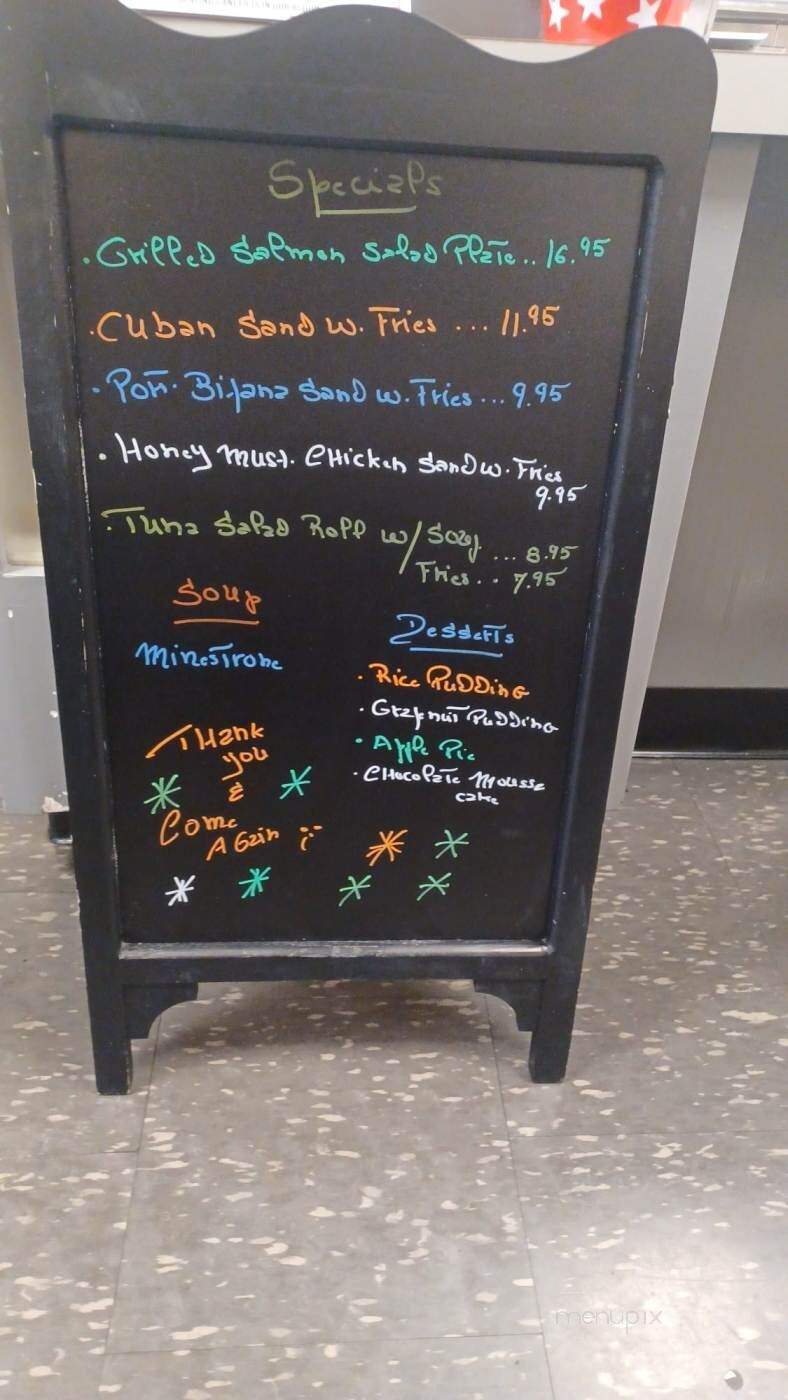 Specials
. Grilled Salmon Salad Plate.. 16.95
. Cuban Sand w. Fries ... 11.95
. Port. Bifana Sand w. Fries ... 9.95
. Honey Must. Chicken Sand w. Fries
9.95
. Tuna Salad Roll w/ Soup ... 8.95
Fries.. 7.95
Soup
Minestrone
Desserts
. Rice Pudding
. Grapnut Pudding
. Apple Pie
. Chocolate Mousse
cake
Thank
you
&
Come
Again
menupix